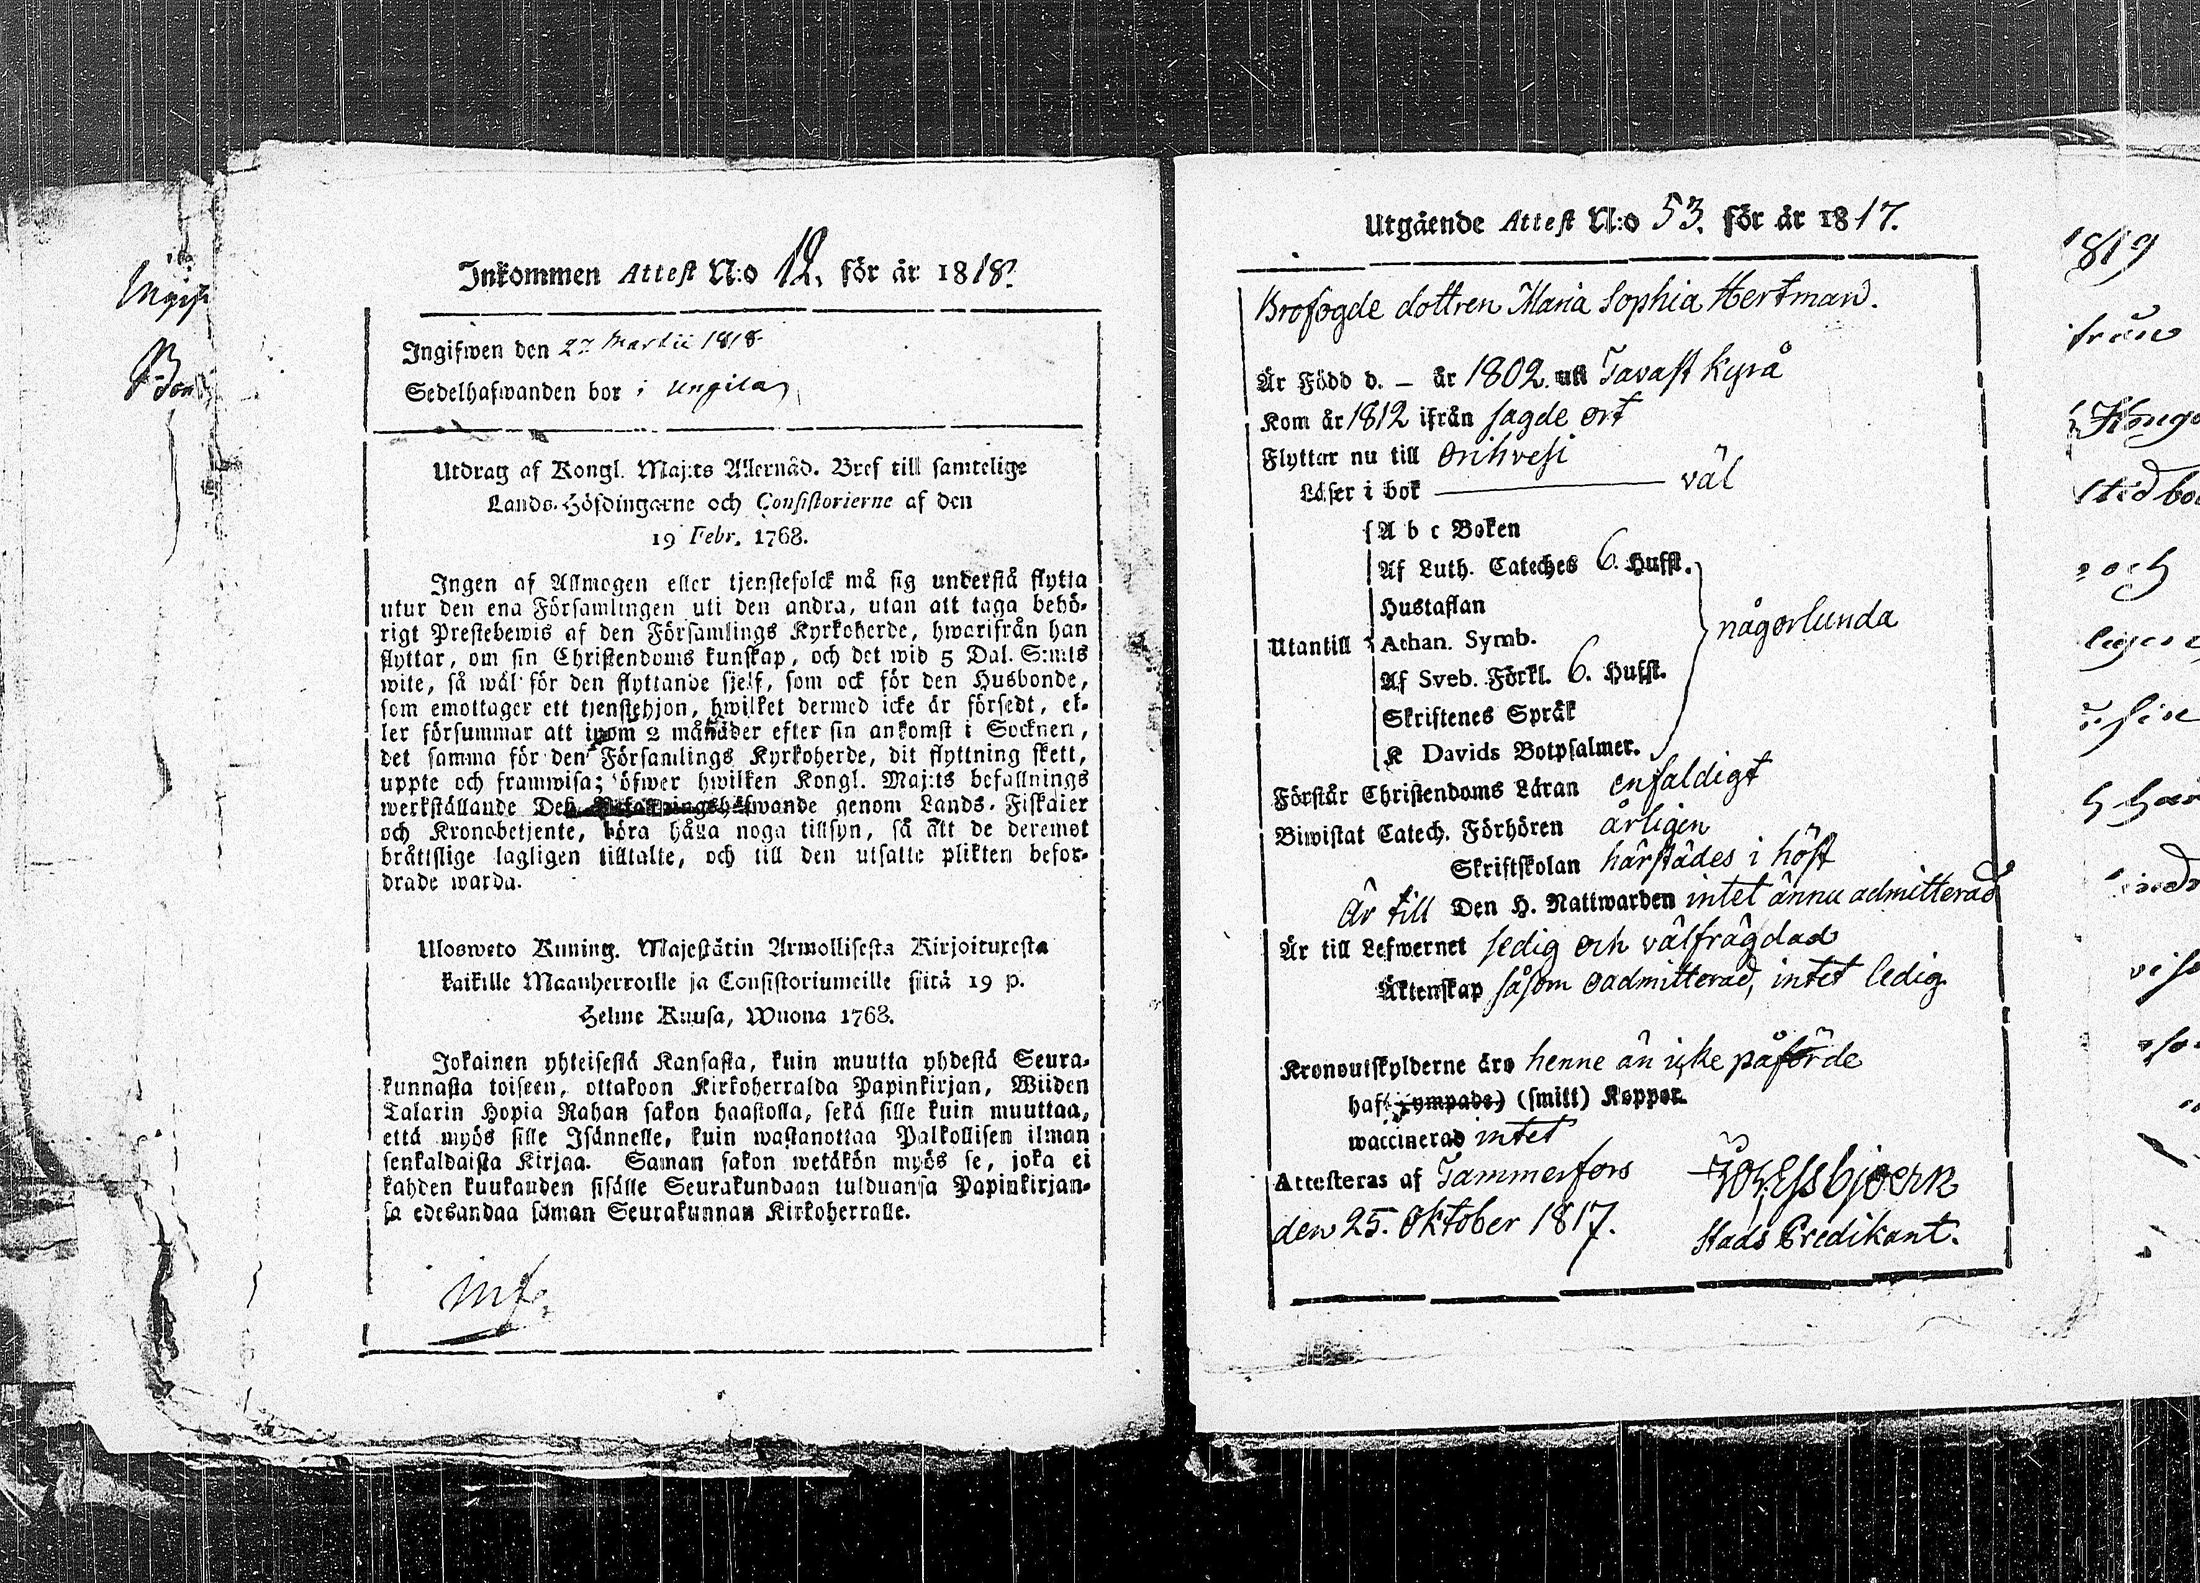 Inkommen Attest N:o 12. för år 1818.
Ingifwen den 27 Martii 1818
Sedelhafwanden bor i
Utdrag af Kongl. Maj:ts Allernåd. Bref till samtelige
Lands-Höfdingarne och Consistorierne af den
19 Febr. 1768.
Ingen af Allmogen eller tjenstefolck må sig understå flytta
utur den ena Församlingen uti den andra, utan att taga behö-
rigt Prestebewis af den Församlings Kyrkoherde, hwarifrån han
flyttar, om sin Christendoms kunskap, och det wid 5 Dal. S:mts
wite, så wäl för den flyttande sjelf, som ock för den Husbonde,
som emottager ett tjenstehjon, hwilket dermed icke är försedt, el-
ler försummar att inom 2 månader efter sin ankomst i Socknen,
det samma för den Församlings Kyrkoherde, dit flyttning skett,
uppte och framwisa; öfwer hwilken Kongl. Maj:ts befallnings
werkställande Des Befallningshafwande genom Lands-Fiskaler
och Kronobetjente, böra hålla noga tillsyn, så att de deremot
bråttslige lagligen tilltalte, och till den utsatte plikten befor-
drade warda.
Ulosweto Kuning. Majestätin Armollisesta Kirjoituxesta
kaikille Maanherroille ja Consistoriumeille siitä 19 p.
Helme Kuusa, Wuona 1768.
Jokainen yhteisestä Kansasta, kuin muutta yhdestä Seura-
kunnasta toiseen, ottakoon Kirkoherralda Papinkirjan, Wiiden
Talarin Hopia Rahan sakon haastolla, sekä sille kuin muuttaa,
että myös sille Isännelle, kuin wastanottaa Palkollisen ilman
senkaldaista Kirjaa. Saman sakon wetäkön myös se, joka ei
kahden kuukauden sisälle Seurakundaan tulduansa Papinkirjan-
sa edesandaa saman Seurakunnan Kirkoherralle.
Utgående Attest N:o 53. för år 1817.
Brofogde dottren Maria Sophia Hertman.
Är Född d. – år 1802. uti Tavast Kyrå
Kom år 1812 ifrån sagde ort
Flyttar nu till Orihvesi
Läser i bok väl
A b c Boken
Af Luth. Cateches 6. Hufst.
Hustaflan
Utantill Athan. Symb. någorlunda
Af Sveb. Förkl. 6. Hufst.
Skriftenes Språk
K Davids Botpsalmer.
Förstår Christendoms Läran enfaldigt
Biwistat Catech. Förhören årligen
Skriftskolan härstädes i höst
Är till Den H. Nattwarden intet ännu admitterad
Är till Lefwernet sedig och välfrägdad
Äktenskap såsom oadmitterad, intet ledig
Kronoutskylderne äro henne än icke påförde
haft (ympade) (smitt) Koppor.
waccinerad intet
Attesteras af Tammerfors
den 25. Oktober 1817.
Stads Predikant.
1819
och